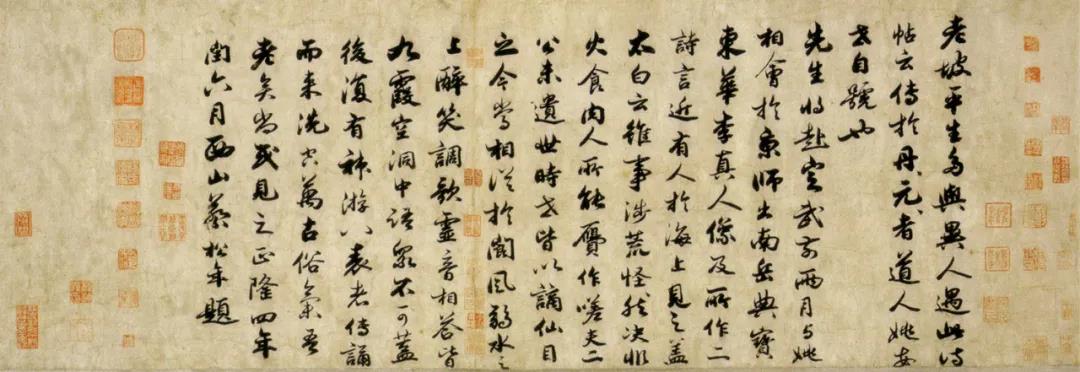 老坡平生多與異人遇此诗
帖云傳於丹〻元〻者道人姚安
世自號也
先生將赴定武前兩月与姚
相會於京師出南岳典寶
東華李真人像及所作二
詩言近有人於海上見之盖
太白云雖事涉荒怪然决非
火食肉人所能贋作嗟夫二
公未遺世時世皆以謫仙目
之今當相從於閬風弱水之
上醉笑調歌靈音相荅皆
九霞空洞中語不可蓋
後復有神游八表者傳誦
而来洗空萬古俗氣吾
老矣尚或見之正隆四年
閏六月西山蔡松年題